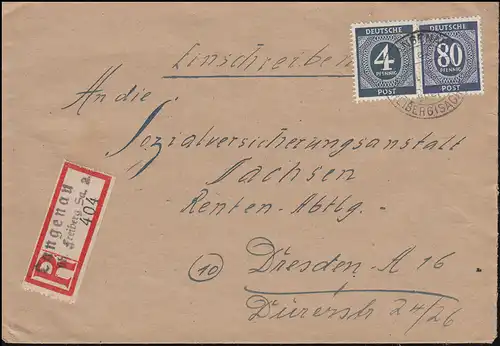 Einschreiben
DEUTSCHE
4
PFENNIG
POST
DEUTSCHE
80
PFENNIG
POST
An die
Sozialversicherungsanstalt
Sachsen
Renten-Abtlg.
10 Dresden-A 16
Dürerstr 24/26
R
Langenau
Freiberg Sa. a
404